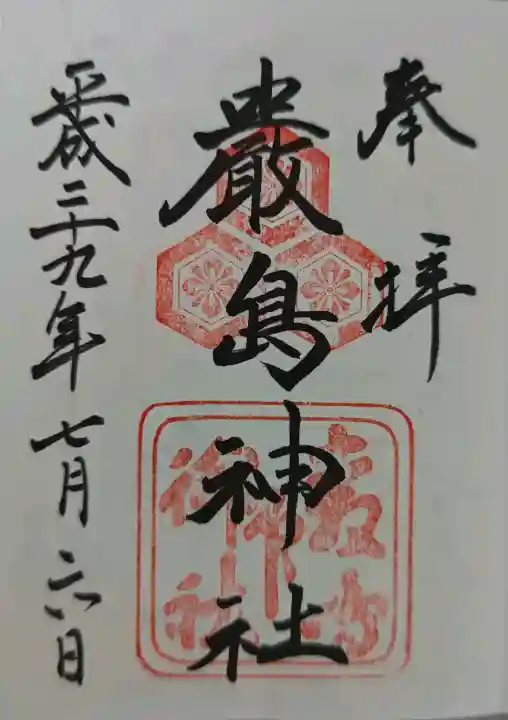 奉拝
嚴島神社
平成二十九年七月六日